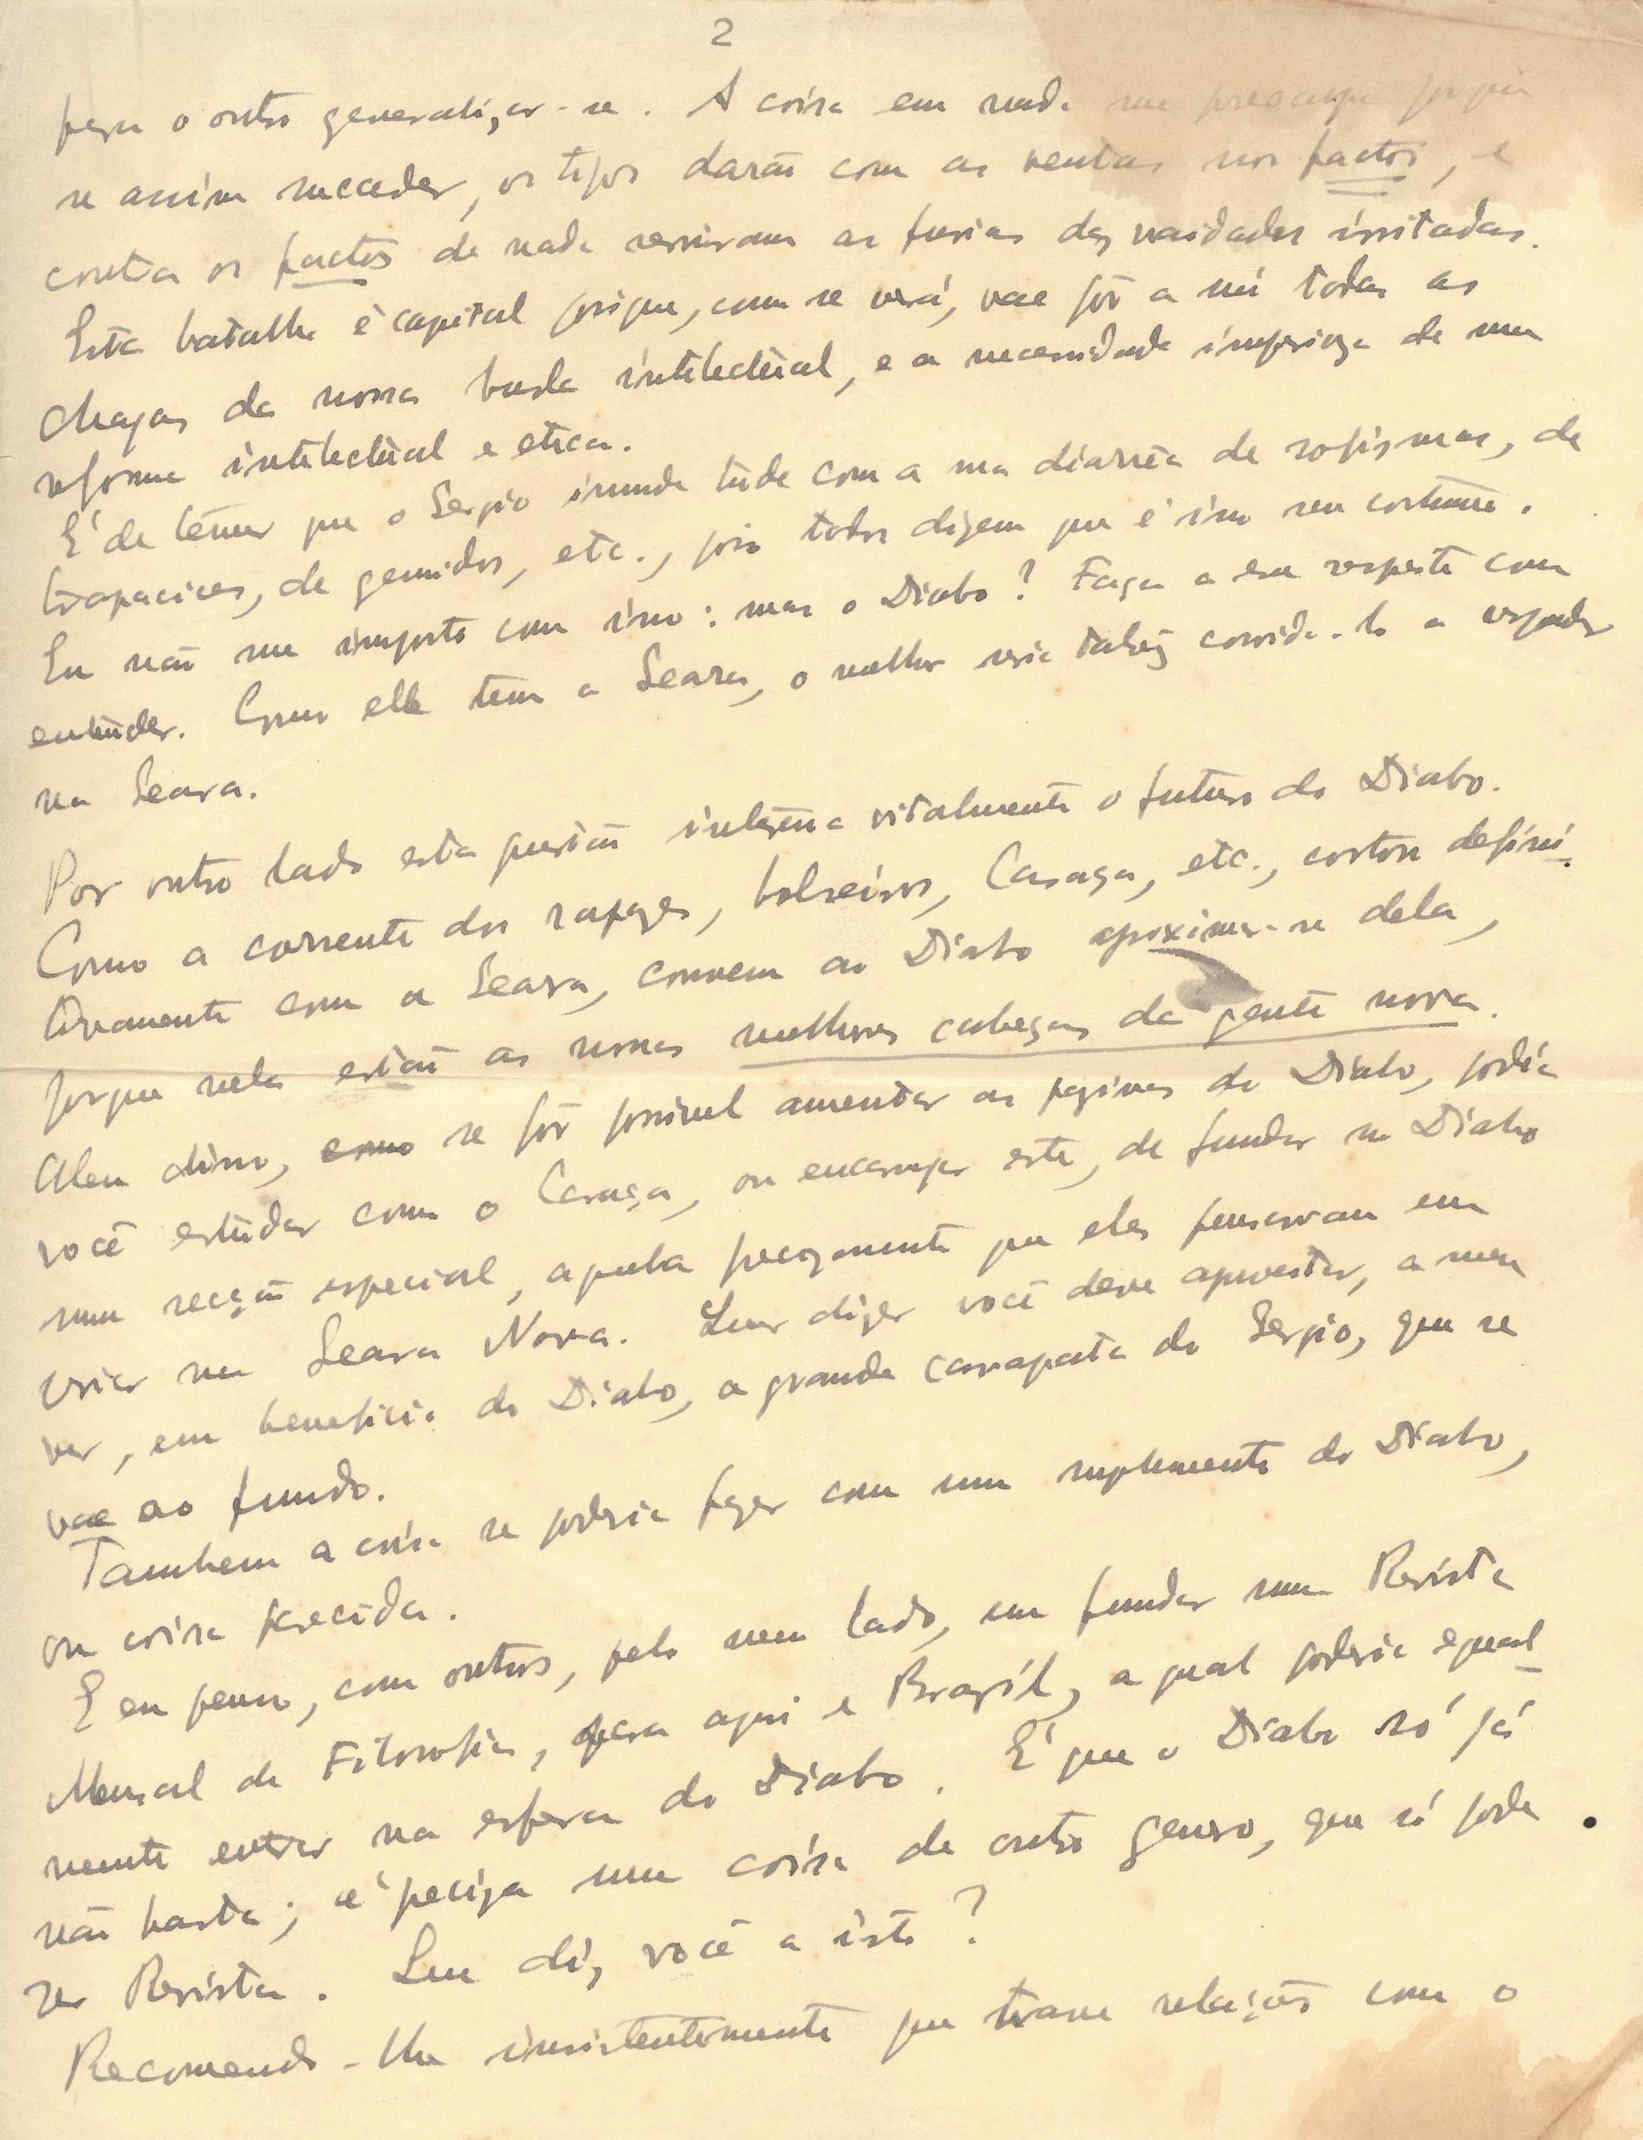 2
para o outro generalizar-se. A coisa em nada me preocupa porque
se assim suceder, os tipos darão com as ventas nos factos, e
contra os factos de nada serviram as furias das vaidades irritadas.
Esta batalha é capital porque, como se verá, vae pôr a nú todas as
chagas da nossa
intelectual, e a necessidade imperiosa de uma
reforma intelectual e etica.
É de temer que o Sergio inunde tudo com a sua diarrêa de sofismas, de
trapacices, de gemidos, etc., pois todos dizem que é isso seu costume.
Eu não me importo com isso: mas o Diabo? Faça a esse respeito como
entender. Como elle tem a Seara, o melhor seria talvez convida-lo a responder
na Seara.
Por outro lado esta questão interessa vitalmente o futuro do Diabo.
Como a corrente dos rapazes, bolseiros, Caraça, etc., cortou defini-
tivamente com a Seara, convem ao Diabo aproximar-se dela,
porque nela estão as nossas melhores cabeças da gente nova.
Alem disso, se fôr possivel aumentar as paginas do Diabo, podia
você estudar com o Caraça, ou encarregar este, de fundar no Diabo
uma secção especial, aquela precizamente que eles pensavam em
criar na Seara Nova. Quer dizer você deve aproveitar, a meu
ver, em beneficio do Diabo, a grande carrapata do Sergio, que se
vae ao fundo.
Tambem a coisa se poderia fazer com um suplemento do Diabo,
ou coisa parecida.
E eu penso, com outros, pelo meu lado, em fundar uma Revista
Mensal de Filosofia, para aqui e Brazil, a qual poderia egual-
mente entrar na esfera do Diabo. É que o Diabo só já
não basta; é preciza uma coisa de outro genero, que só pode
ser Revista. Que diz você a isto?
Recomendo-lhe insistentemente que trave relações com o